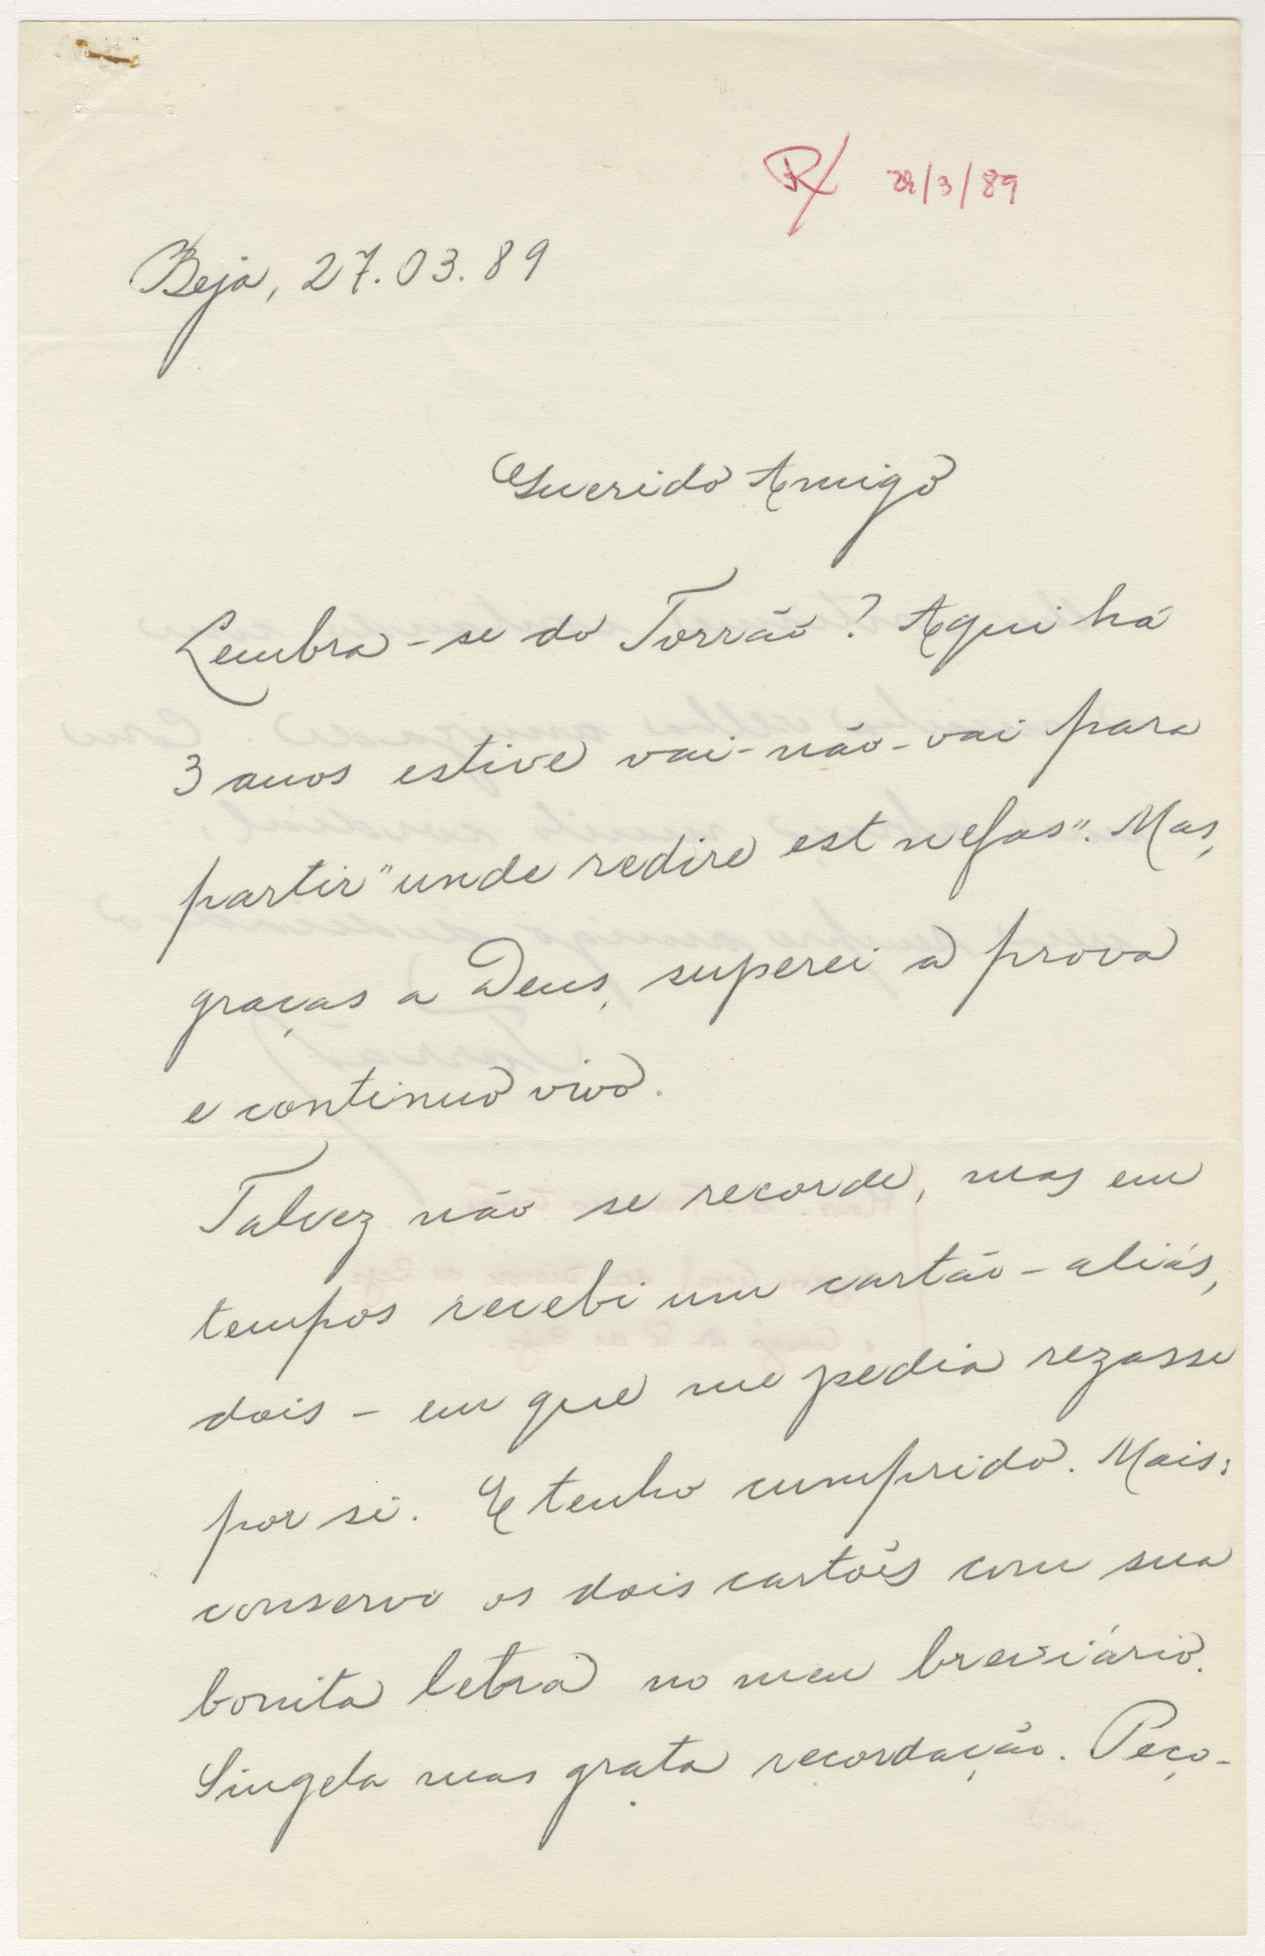 R/ 28/3/89
Beja, 27.03.89
Querido Amigo
Lembra-se do Torrão? Aqui há
3 anos estive vai-não-vai para
partir "unde redire est nefas". Mas,
graças a Deus, superei a prova
e continuo vivo.
Talvez não se recorde, mas em
tempos recebi um cartão - aliás,
dois - em que me pedia rezasse
por si. E tenho cumprido. Mais:
conservo os dois cartões com sua
bonita letra no meu breviário.
Singela mas grata recordação. Peço-